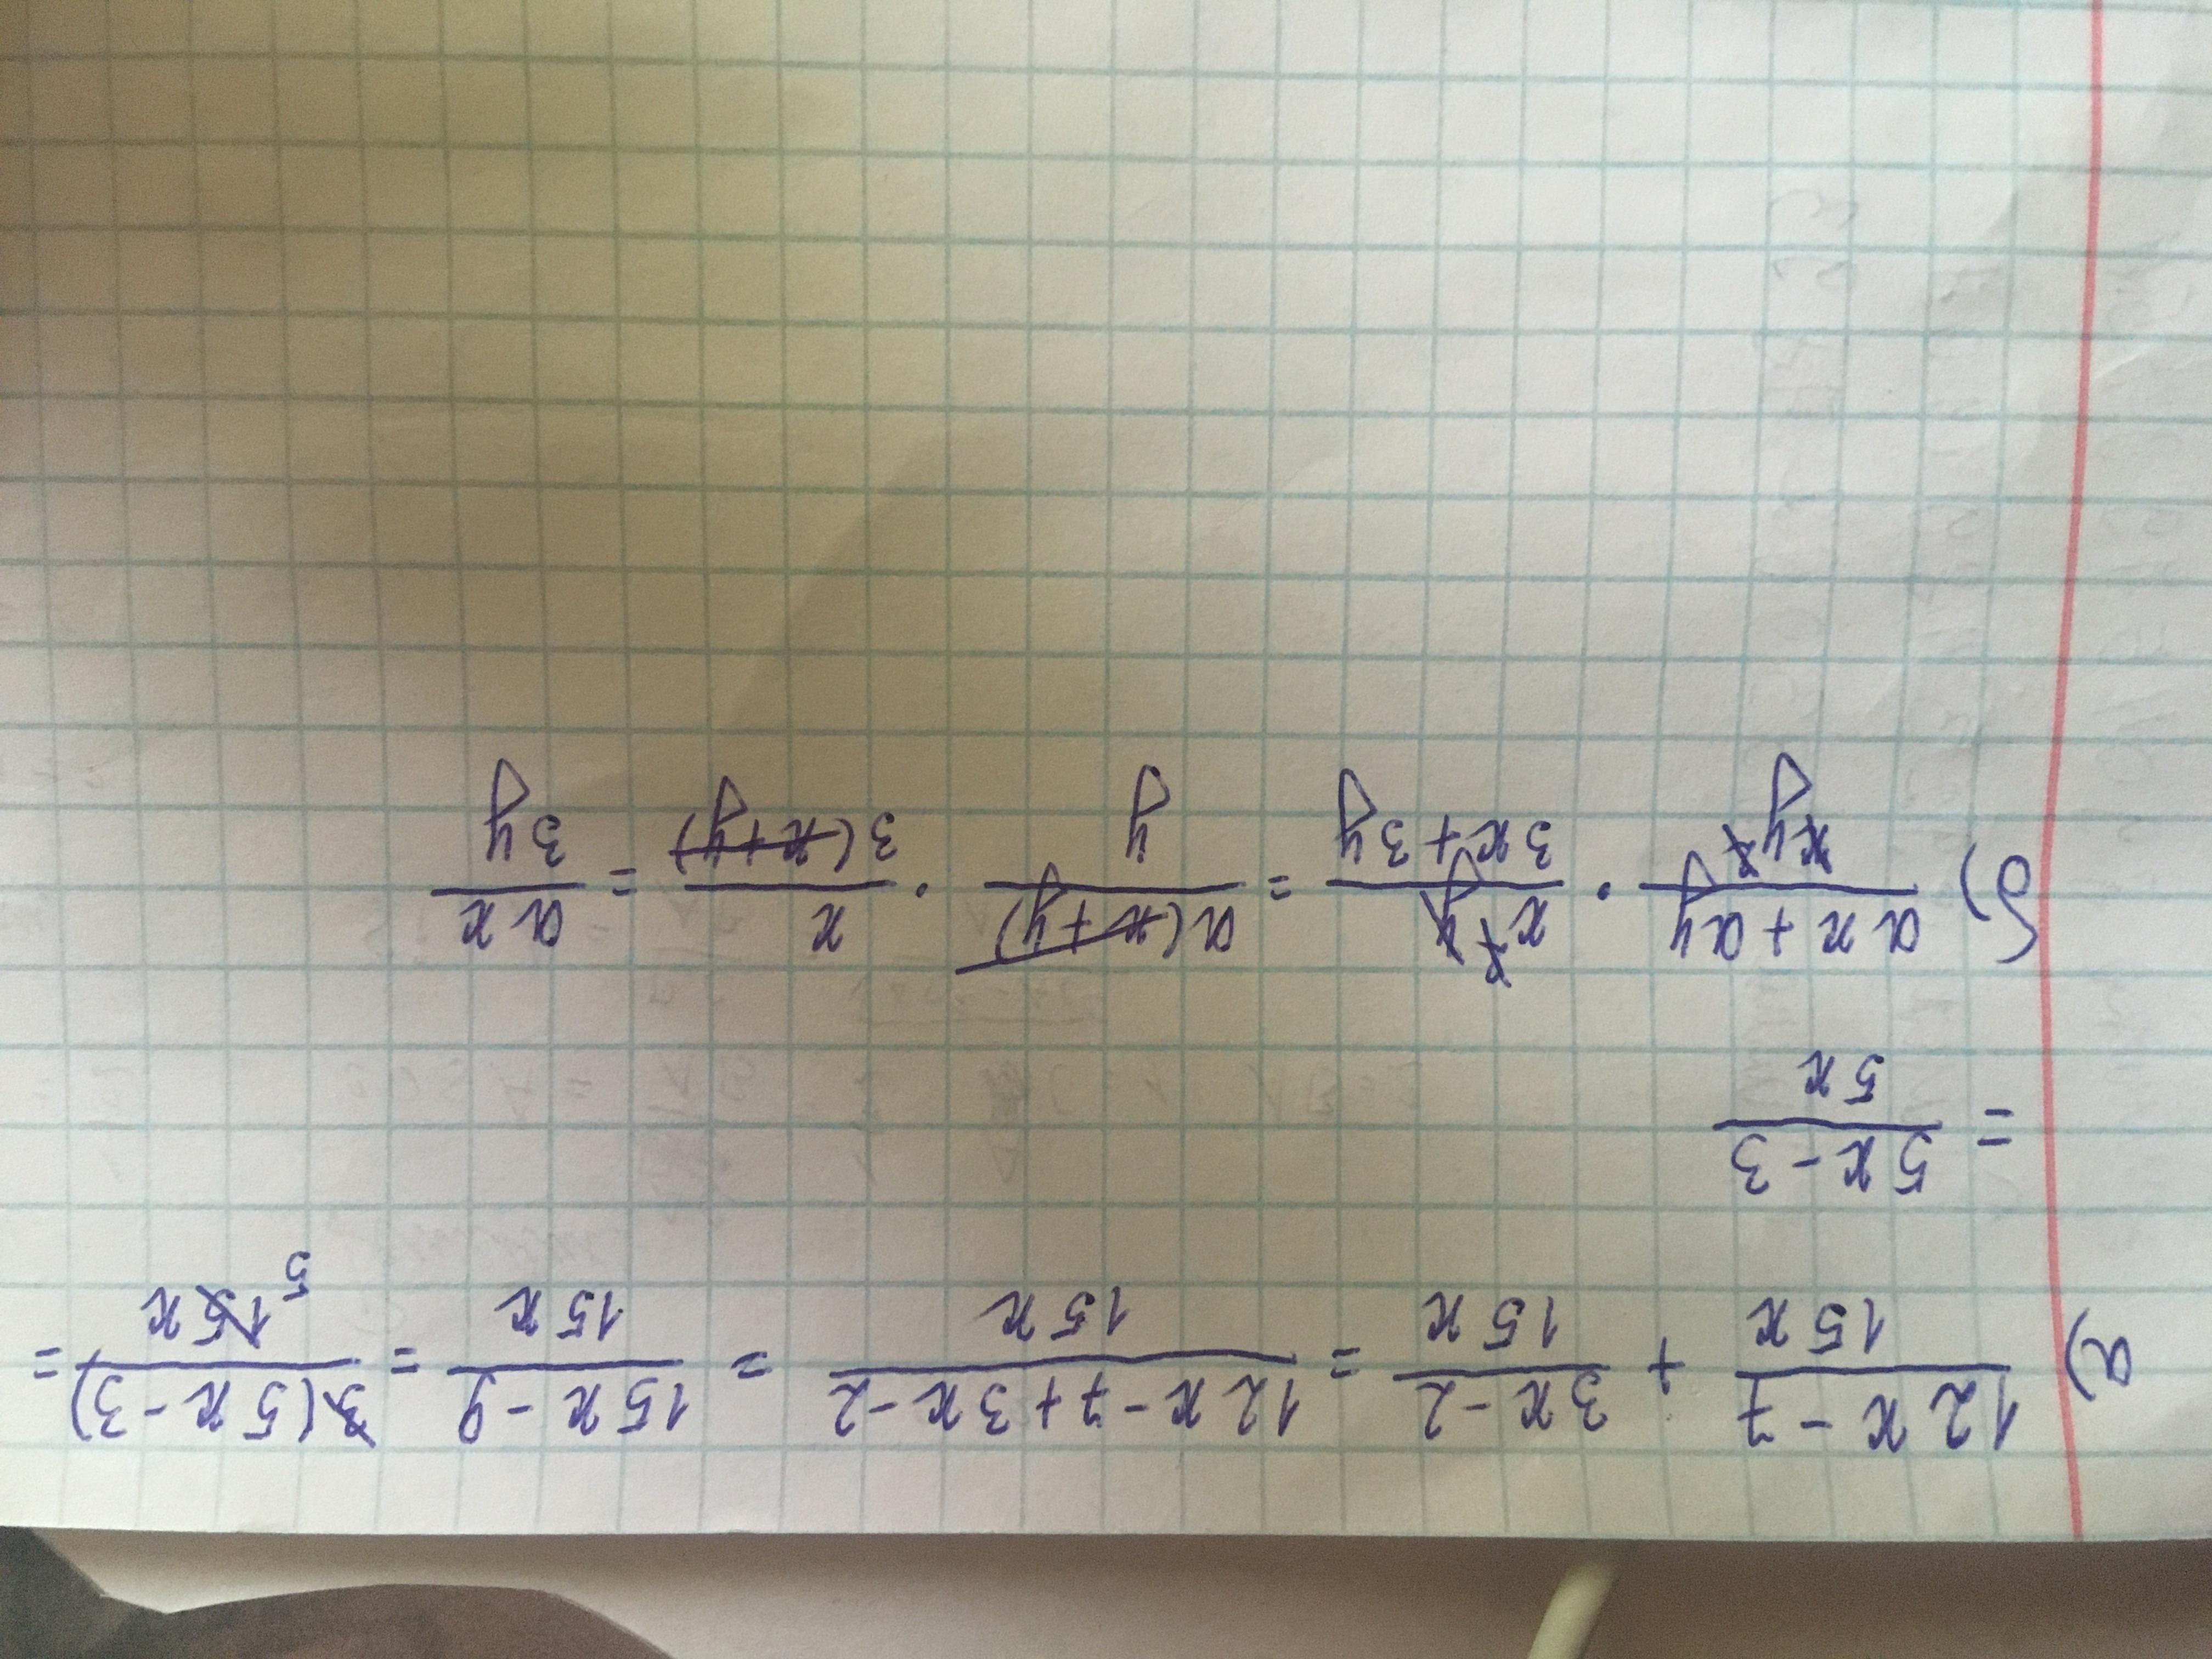 а) \frac{12x-7}{15x} + \frac{3x-2}{15x} = \frac{12x-7+3x-2}{15x} = \frac{15x-9}{15x} = \frac{3(5x-3)}{15x} 5 =
= \frac{5x-3}{5x}
б) \frac{ax+ay}{xy^2} · \frac{x^2y}{3x+3y} = \frac{a(x+y)}{y} · \frac{x}{3(x+y)} = \frac{ax}{3y}